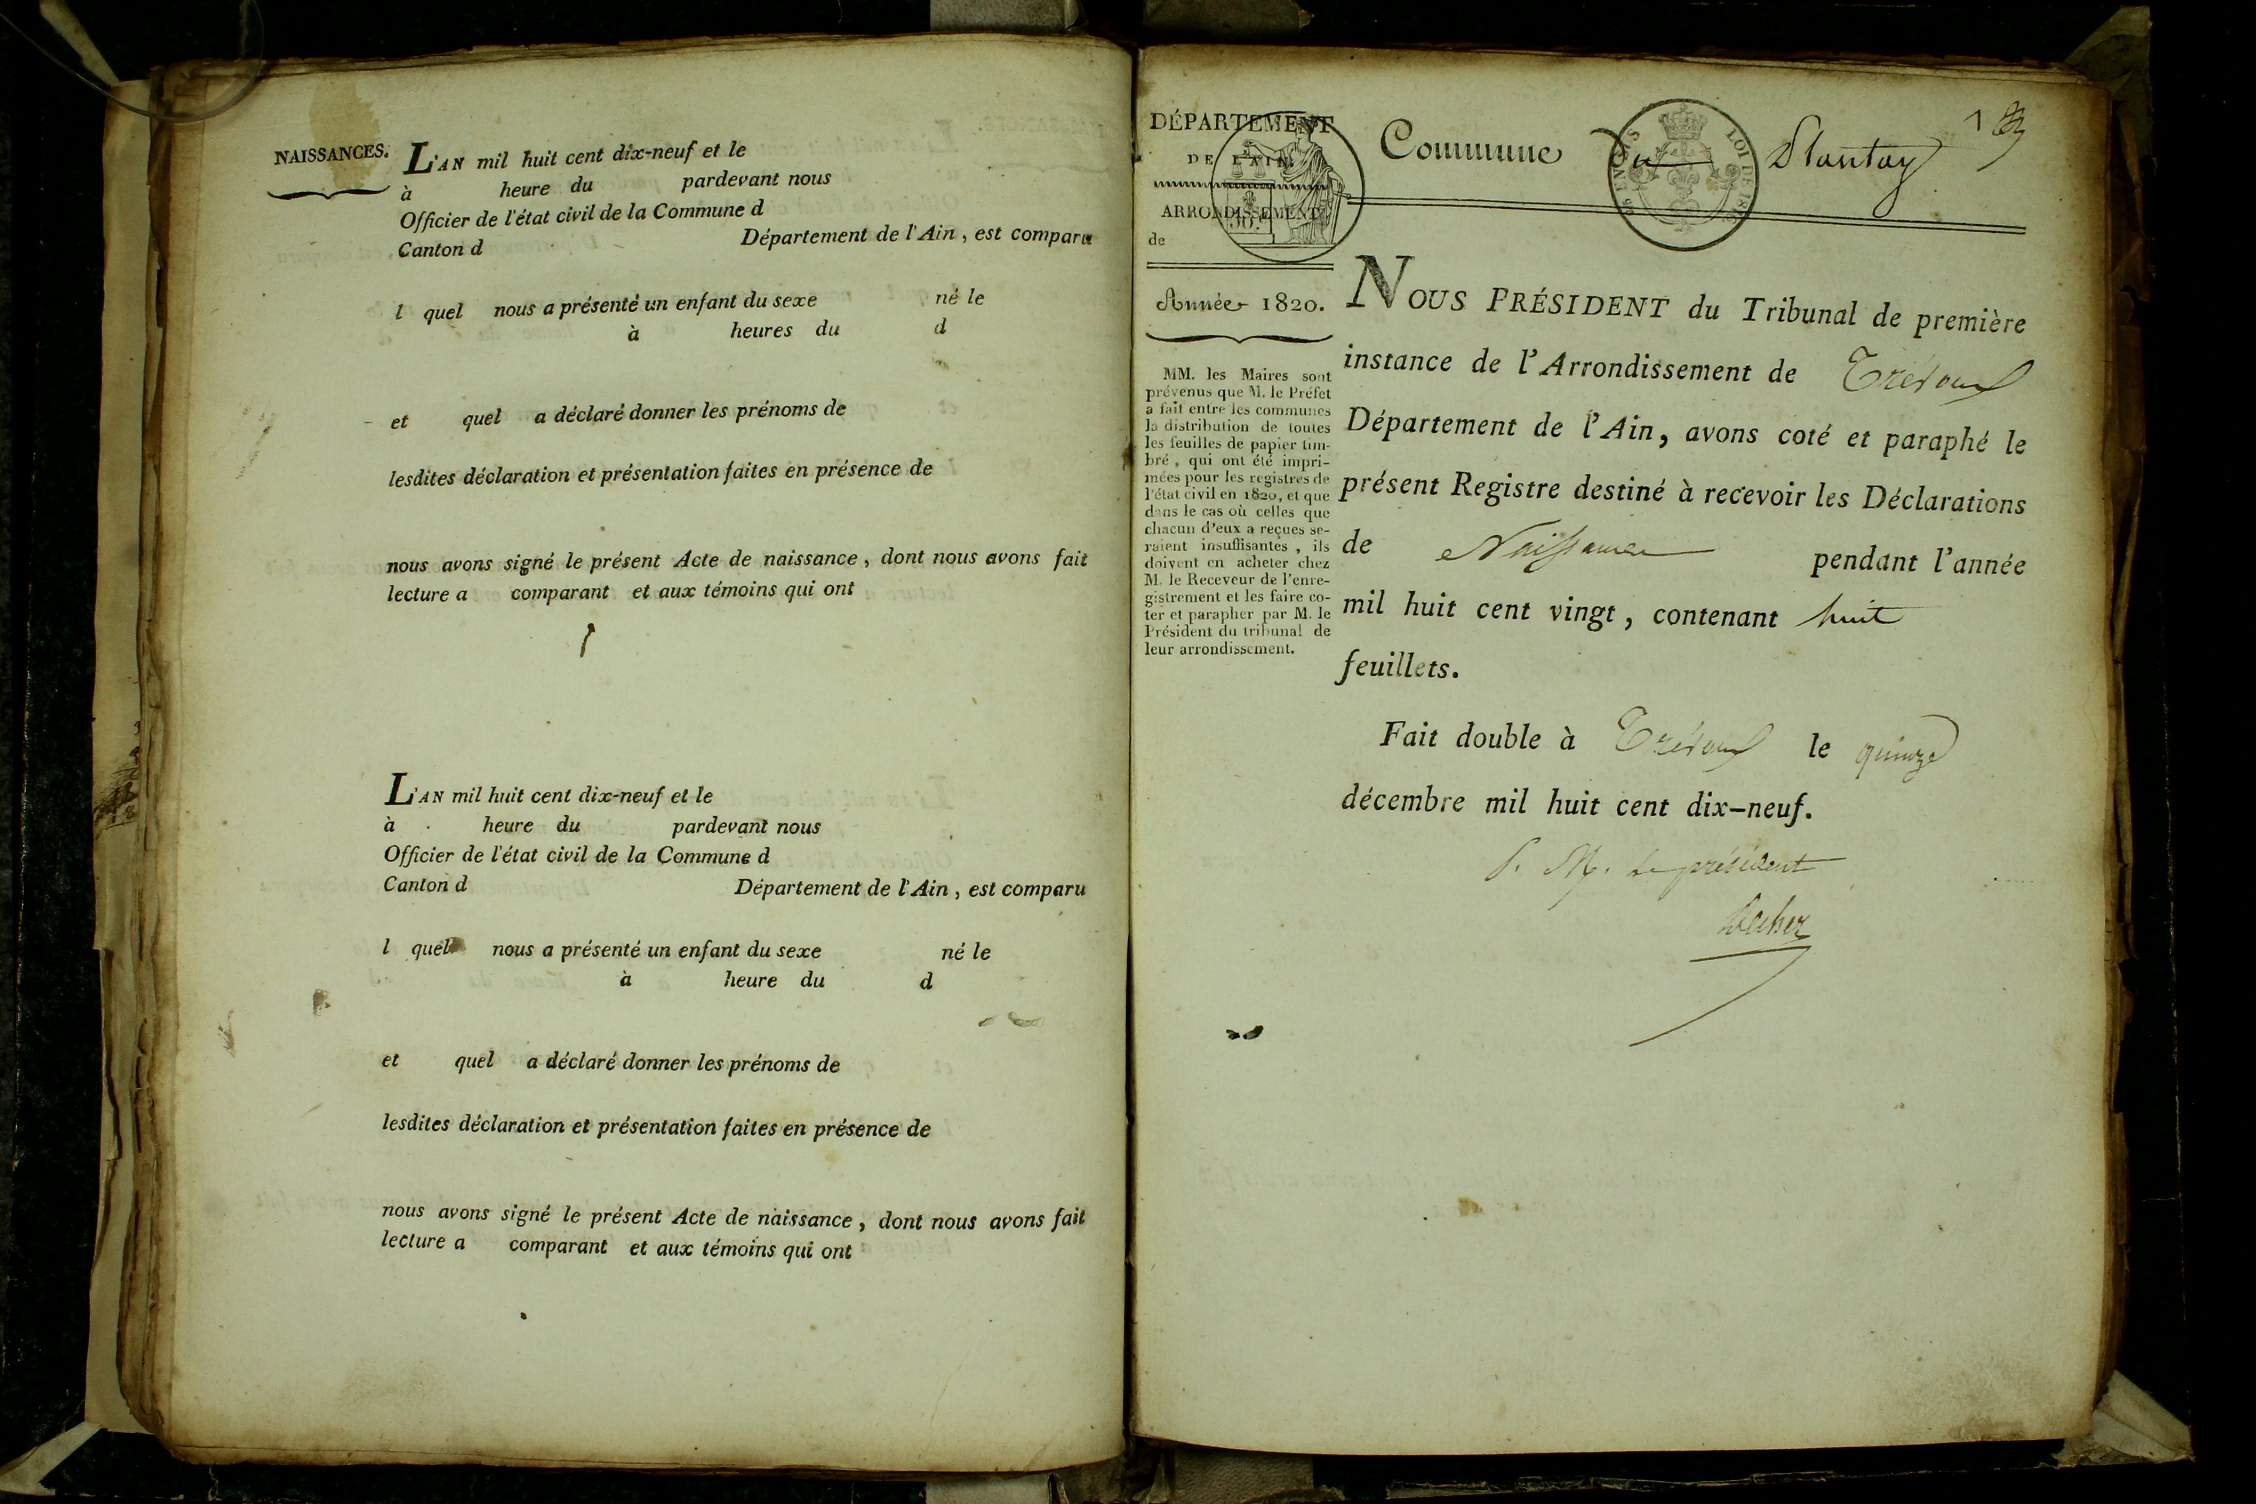 NAISSANCES.
L'AN mil huit cent dix-neuf et le
à heure du pardevant nous
Officier de l'état civil de la Commune d
Canton d Département de l'Ain, est comparu
l quel nous a présenté un enfant du sexe né le
à heures du d
et quel a déclaré donner les prénoms de
lesdites déclaration et présentation faites en présence de
nous avons signé le présent Acte de naissance, dont nous avons fait
lecture a comparant et aux témoins qui ont
L'AN mil huit cent dix-neuf et le
à heure du pardevant nous
Officier de l'état civil de la Commune d
Canton d Département de l'Ain, est comparu
l quel nous a présenté un enfant du sexe né le
à heure du d
et quel a déclaré donner les prénoms de
lesdites déclaration et présentation faites en présence de
nous avons signé le présent Acte de naissance, dont nous avons fait
lecture a comparant et aux témoins qui ont
DÉPARTEMENT
DE L'AIN.
ARRONDISSEMENT
de
Année 1820.
MM. les Maires sont
prévenus que M. le Préfet
a fait entre les communes
la distribution de toutes
les feuilles de papier tim-
bré, qui ont été impri-
mées pour les registres de
l'état civil en 1820, et que
dans le cas où celles que
chacun d'eux a reçues se-
raient insuffisantes, ils
doivent en acheter chez
M. le Receveur de l'enre-
gistrement et les faire co-
ter et parapher par M. le
Président du tribunal de
leur arrondissement.
1
Commune du Plantay
LOI DE
NOUS PRÉSIDENT du Tribunal de première
instance de l'Arrondissement de Trévoux
Département de l'Ain, avons coté et paraphé le
présent Registre destiné à recevoir les Déclarations
de Naissance pendant l'année
mil huit cent vingt, contenant huit
feuillets.
Fait double à Trévoux le quinze
décembre mil huit cent dix-neuf.
P. M. le président